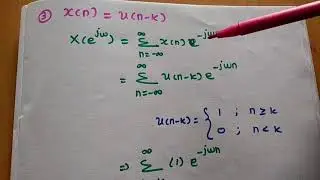 ③ x(n) = u(n-k)
X(e^{jω}) = ∑_{n=-∞}^{∞} x(n) e^{-jωn}
= ∑_{n=-∞}^{∞} u(n-k) e^{-jωn}
u(n-k) = { 1 ; n ≥ k
0 ; n < k
⇒ ∑^{∞} (1) e^{-jωn}